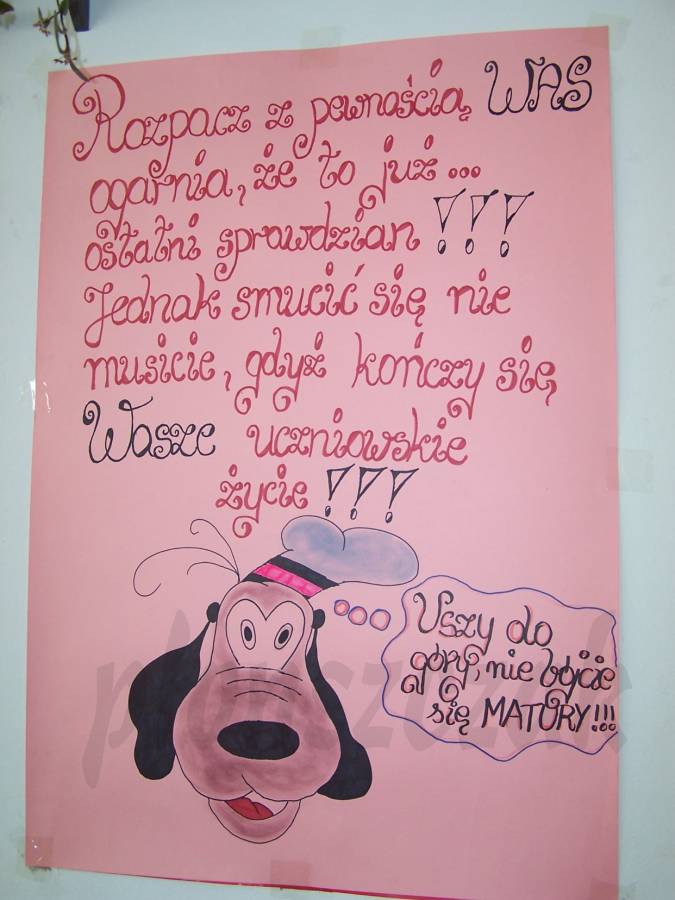 Rozpacz z pewnością WAS
ogarnia, że to już...
ostatni sprawdzian !!!
Jednak smucić się nie
musicie, gdyż kończy się
Wasze uczniowskie
życie !!!
Uszy do
góry, nie bójcie
się MATURY!!!